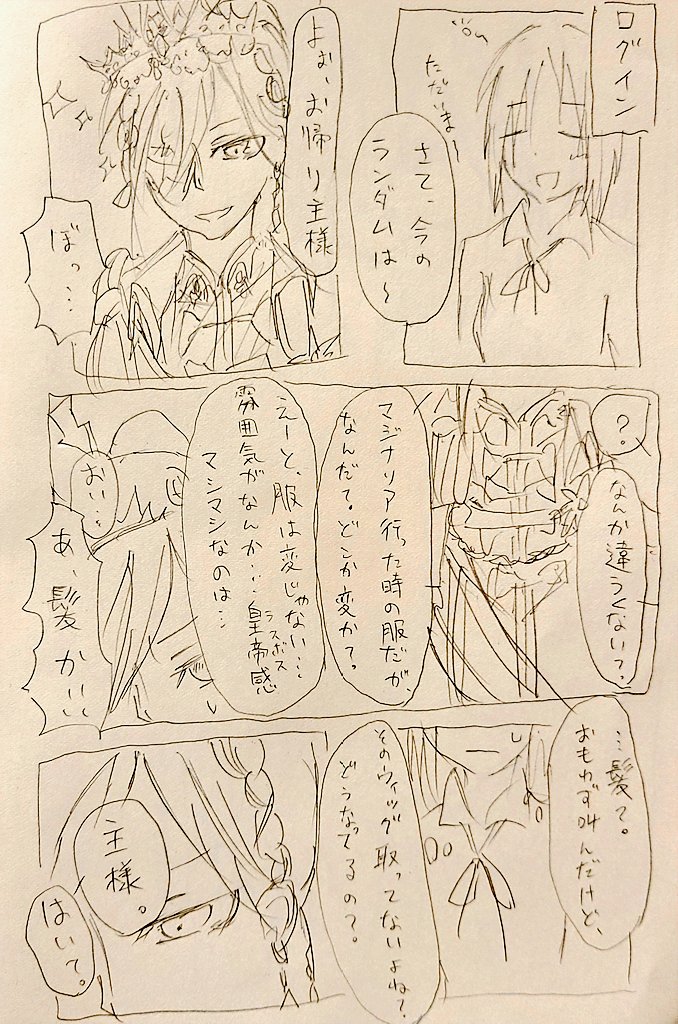 ログイン
ただいまー
さて、今の
ランダムは〜
よぉ、お帰り主様
ぼっ…
?
なんか違くない?
マジナリア行った時の服だが、
なんだ?どこか変か?
えーと、服は変じゃない…
雰囲気がなんか…皇帝感
ラスボス
マシマシなのは…
おい〜
あ、髪かぁ
…髪?
おもわず叫んだけど、
そのウィッグ取ってないよね?
どうなってるの?
主様。
はいて。